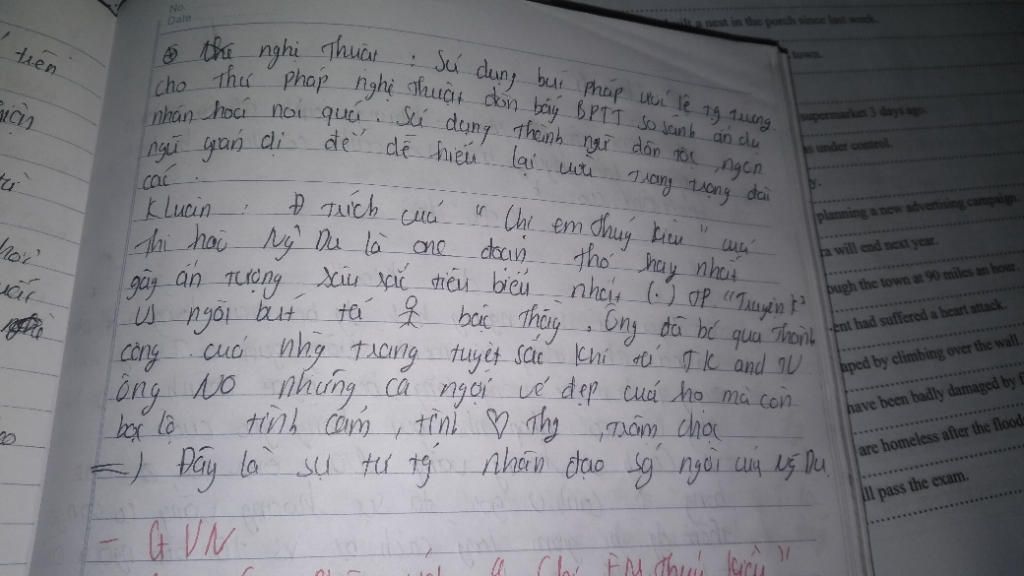 No.
Date
nghị thuật : Sử dụng bút pháp ước lệ tg tương
cho Thư pháp nghị thuật đòn bẩy BPTT so sánh ẩn dụ
nhân hoá nói quá. Sử dụng Thanh ngữ dân tộc, ngôn
ngữ gian dị để dễ hiểu lại vừa trang trọng đài
các.
K luận : Đ trích của " Chị em thuý kiều " của
thi hào Ng~ Du là one đoạn thơ hay nhất
gây ấn tượng xâu xắc tiêu biểu nhất (.) TP "Truyện K"
Vs ngòi bút tả bậc thầy. Ông đã bé quá thành
công của nhg trang tuyệt sắc khi tả TK and TV
ông NO những ca ngợi vẻ đẹp của họ mà còn
bọc lộ tình cảm, tình ♡ Thg, trâm chọc
=) Đây là sự tư tg nhân đạo sg ngời của Ng~ Du.
- G VN
" Chị EM Thuý kiều "
tiên
built a nest in the porch since last week.
town.
supermarket 3 days ago.
under control.
planning a new advertising campaign.
will end next year.
ough the town at 90 miles an hour.
ent had suffered a heart attack.
aped by climbing over the wall.
have been badly damaged by f
are homeless after the flood
ll pass the exam.